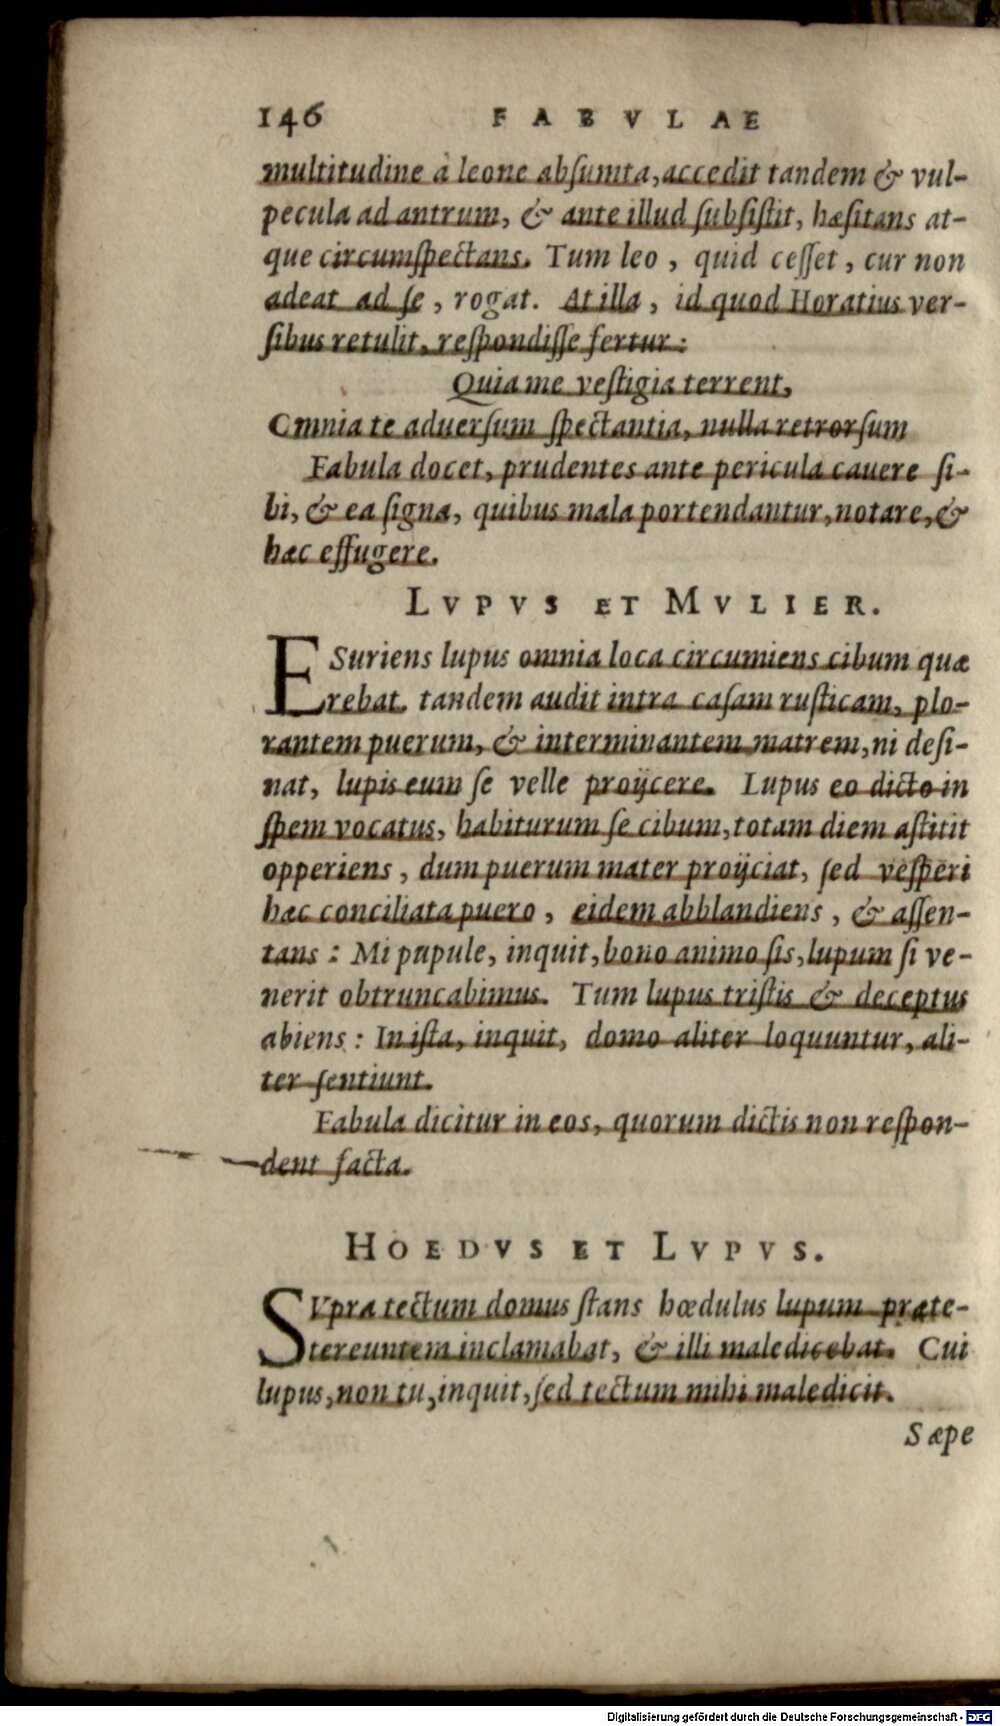 146 FABVLAE
multitudine à leone absumta, accedit tandem & vul-
pecula ad antrum, & ante illud subsistit, hæsitans at-
que circumspectans. Tum leo, quid cesset, cur non
adeat ad se, rogat. At illa, id quod Horatius ver-
sibus retulit, respondisse fertur:
Quia me vestigia terrent,
Omnia te aduersum spectantia, nulla retrorsum
Fabula docet, prudentes ante pericula cauere si-
bi, & ea signa, quibus mala portendantur, notare, &
hæc effugere.
LVPVS ET MVLIER.
ESuriens lupus omnia loca circumiens cibum quæ
rebat. tandem audit intra casam rusticam, plo-
rantem puerum, & interminantem matrem, ni desi-
nat, lupis eum se velle proijcere. Lupus eo dicto in
spem vocatus, habiturum se cibum, totam diem astitit
opperiens, dum puerum mater proijciat, sed vesperi
hæc conciliata puero, eidem abblandiens, & assen-
tans: Mi pupule, inquit, bono animo sis, lupum si ve-
nerit obtruncabimus. Tum lupus tristis & deceptus
abiens: In ista, inquit, domo aliter loquuntur, ali-
ter sentiunt.
Fabula dicitur in eos, quorum dictis non respon-
dent facta.
HOEDVS ET LVPVS.
SVpra tectum domus stans hœdulus lupum præte-
tereuntem inclamabat, & illi maledicebat. Cui
lupus, non tu, inquit, sed tectum mihi maledicit.
Sæpe
Digitalisierung gefördert durch die Deutsche Forschungsgemeinschaft - DFG